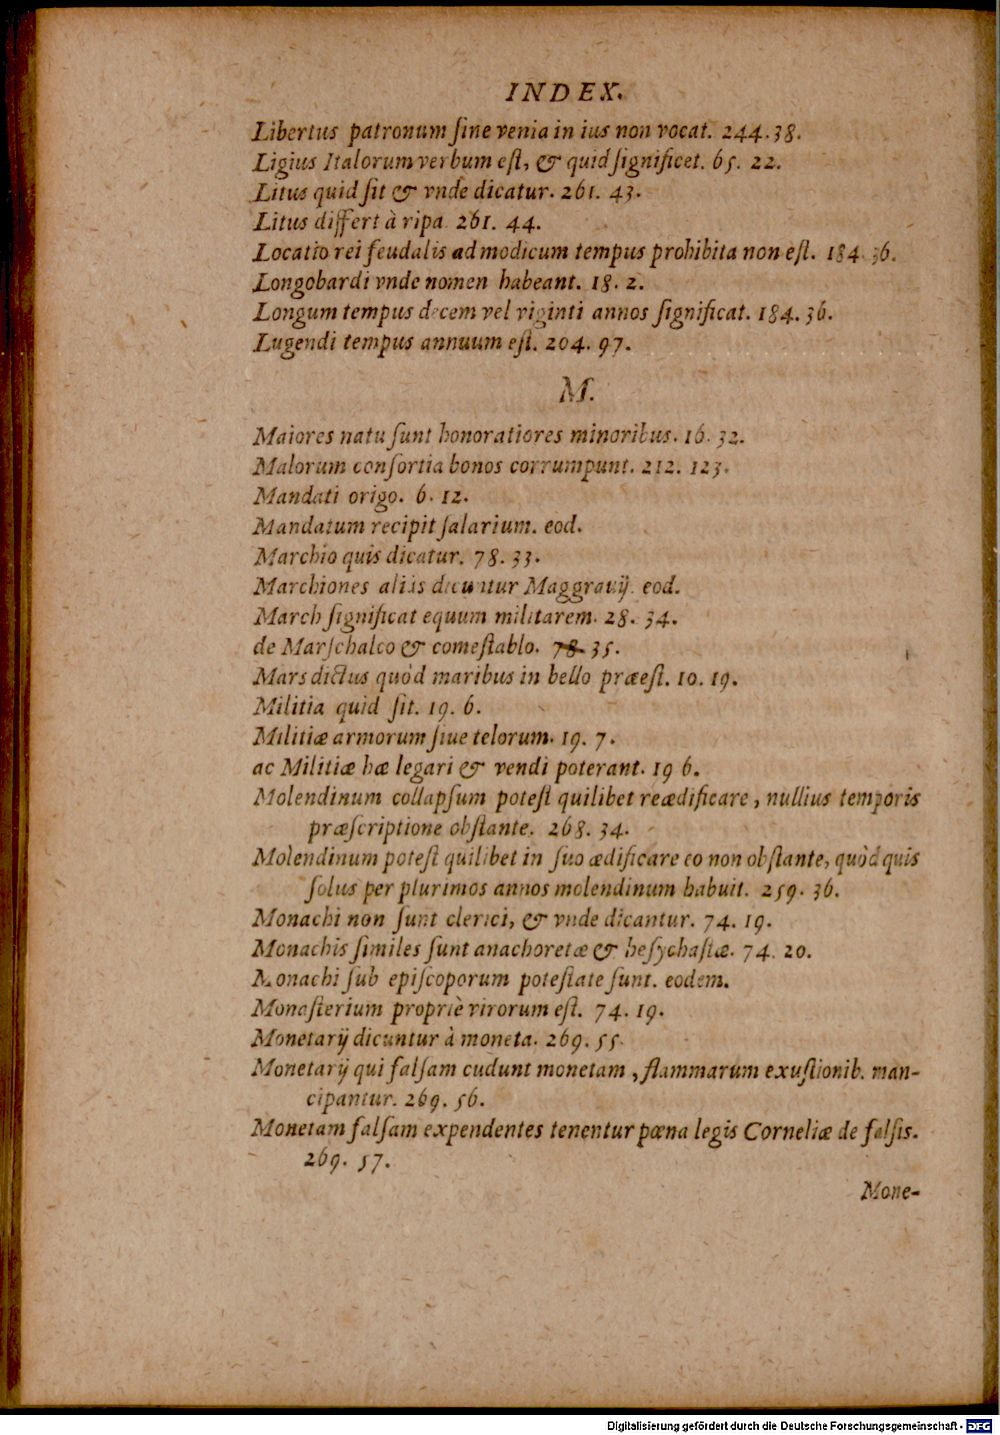 INDEX.
Libertus patronum ſine venia in ius non vocat. 244. 38.
Ligius Italorum verbum eſt, & quid ſignificet. 65. 22.
Litus quid ſit & vnde dicatur. 261. 43.
Litus differt à ripa. 261. 44.
Locatio rei feudalis ad modicum tempus prohibita non eſt. 184. 36.
Longobardi vnde nomen habeant. 18. 2.
Longum tempus decem vel viginti annos ſignificat. 184. 36.
Lugendi tempus annuum eſt. 204. 97.
M.
Maiores natu ſunt honoratiores minoribus. 16. 32.
Malorum conſortia bonos corrumpunt. 212. 123.
Mandati origo. 6. 12.
Mandatum recipit ſalarium. eod.
Marchio quis dicatur. 78. 33.
Marchiones aliis dicuntur Maggrauij. eod.
March ſignificat equum militarem. 28. 34.
de Marſchalco & comeſtablo. 78. 35.
Mars dictus quòd maribus in bello præeſt. 10. 19.
Militia quid ſit. 19. 6.
Militiæ armorum ſiue telorum. 19. 7.
ac Militiæ hæ legari & vendi poterant. 19 6.
Molendinum collapſum poteſt quilibet reædificare, nullius temporis
præſcriptione obſtante. 268. 34.
Molendinum poteſt quilibet in ſuo ædificare eo non obſtante, quòd quis
ſolus per plurimos annos molendinum habuit. 259. 36.
Monachi non ſunt clerici, & vnde dicantur. 74. 19.
Monachis ſimiles ſunt anachoretæ & heſychaſtæ. 74. 20.
Monachi ſub epiſcoporum poteſtate ſunt. eodem.
Monaſterium propriè virorum eſt. 74. 19.
Monetarij dicuntur à moneta. 269. 55.
Monetarij qui falſam cudunt monetam, flammarum exuſtionib. man-
cipantur. 269. 56.
Monetam falſam expendentes tenentur pœna legis Corneliæ de falſis.
269. 57.
Mone-
Digitalisierung gefördert durch die Deutsche Forschungsgemeinschaft - DFG